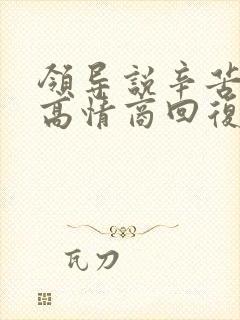 領导説辛苦
高情商回復
瓦刀